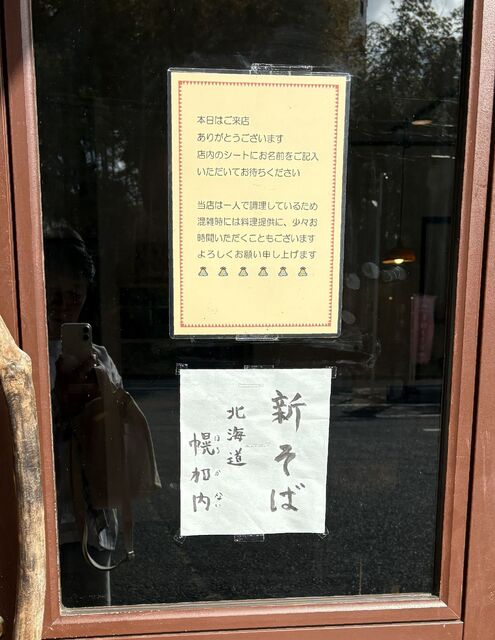 本日はご来店
ありがとうございます
店内のシートにお名前をご記入
いただいてお待ちください
当店は一人で調理しているため
混雑時には料理提供に、少々お
時間いただくこともございます
よろしくお願い申し上げます
新そば
北海道
幌加内
ほろかない